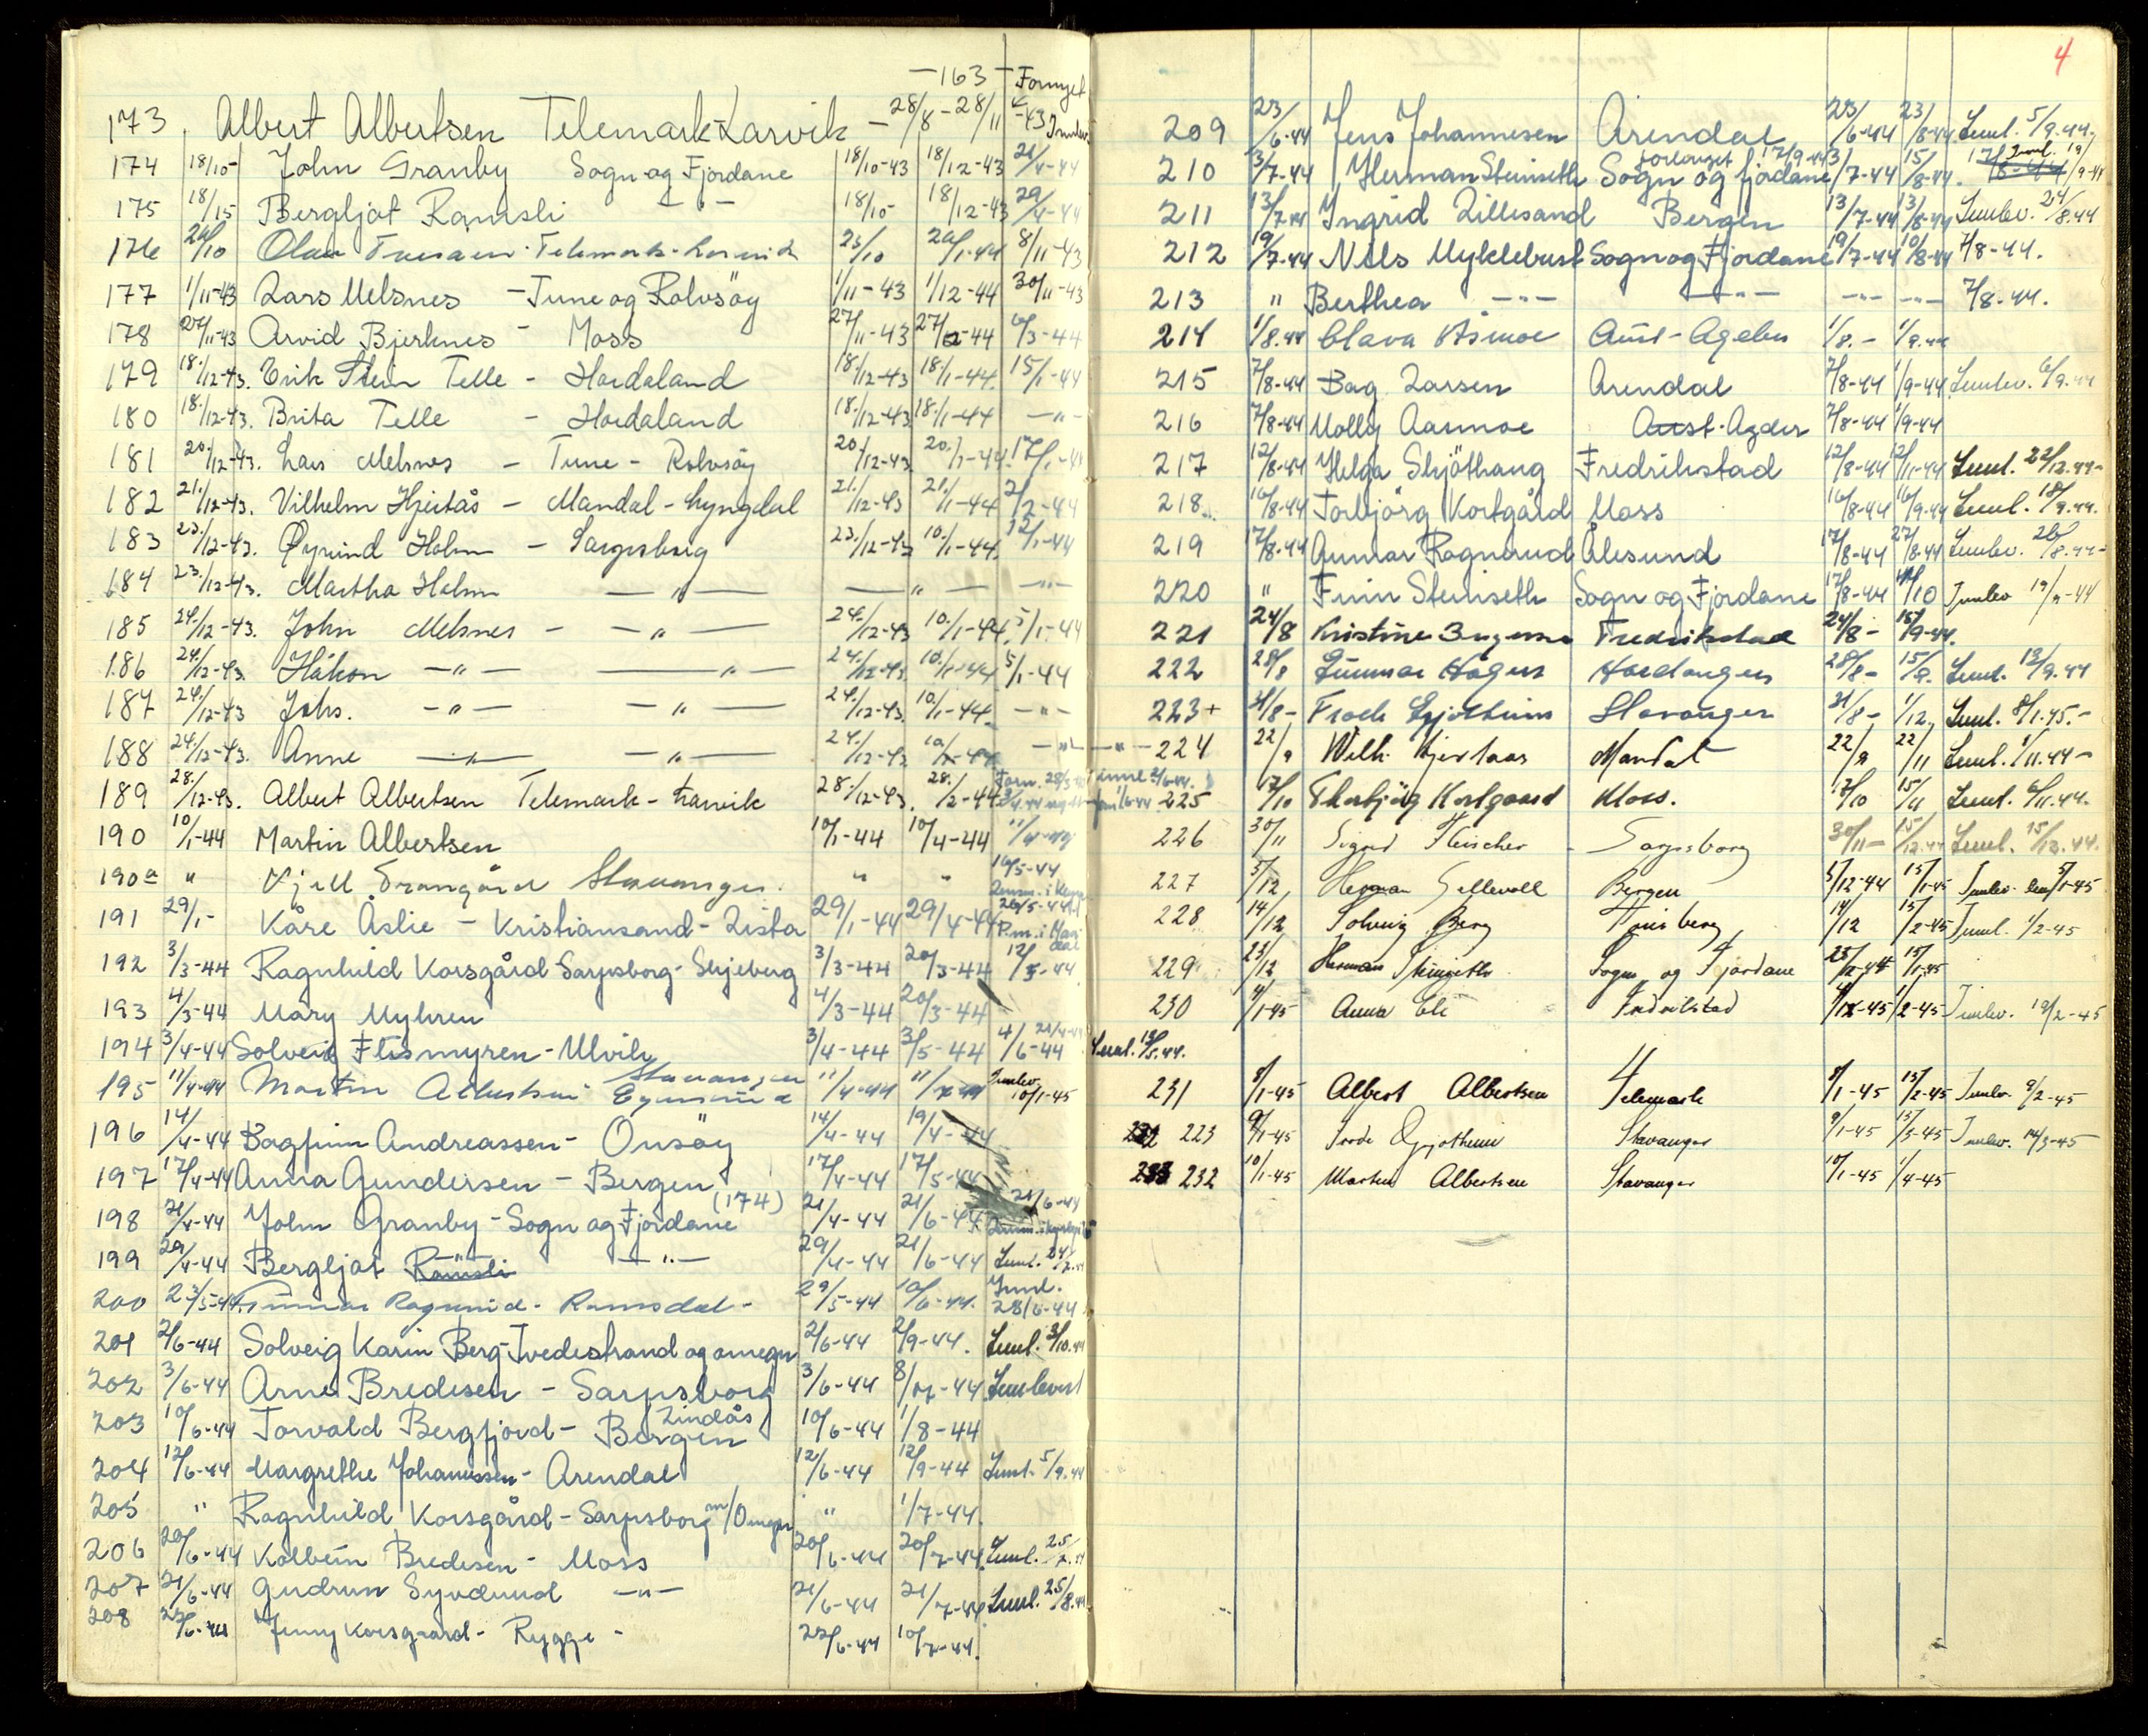 -163- Fornyet
173. Albert Albertsen Telemark-Larvik - 28/8 - 28/11 -43
174 18/10- John Granby Sogn og Fjordane 18/10-43 18/12-43 21/4-44
175 18/15 Bergljot Ramsli - " - 18/10- 18/12-43 29/4-44
176 26/10 Olav Telemark-Larvik 25/10 26/1-44 8/11-43
177 1/11-43 Lars Melsnes - Tune og Rolvsöy 1/11-43 1/12-44 30/11-43
178 27/11-43 Arvid Bjerknes - Moss 27/11-43 27/2-44 6/3-44
179 18./12-43. Erik Stein Telle - Hordaland 18./12-43 18./1-44. 15/1-44
180 18./12-43. Brita Telle - Hordaland 18./12-43 18./1-44 - " -
181 20./12-43. Lars Melsnes - Tune - Rolvsöy 20./12-43 20./1-44. 17/1-44
182 21./12-43. Vilhelm Hjertås - Mandal - Lyngdal 21./12-43 21./1-44 2/2-44
183 23./12-43. Øyvind Holm - Sarpsborg 23./12-43 10./1-44. 12/1-44
184 23./12-43. Martha Holm - " - - " - - " -
185 24./12-43. John Melsnes - - " - 24./12-43 10./1-44. 5/1-44
186 24./12-43. Håkon - " - - " - 24./12-43. 10./1-44 5/1-44
187 24./12-43 Johs. - " - - " - 24./12-43. 10/1-44. - " -
188 24./12-43. Anne - " - - " - 24./12-43 10/1-44 - " - - " -
189 28./12-43. Albert Albertsen Telemark - Larvik 28./12-43. 28./2-44
190 10/1-44 Martin Albertsen 10/1-44 10/4-44 11/4-44
190a " Kjell Stavanger. " " 16/5-44
191 29/1- Kåre Åslie - Kristiansand - Lista 29/1-44 29/4-44 26/5-44
192 3/3-44 Ragnhild Korsgård Sarpsborg - Skjeberg 3/3-44 20/3-44 12/5-44
193 4/3-44 Mary Myhren 4/3-44 20/3-44
194 3/4-44 Solveig Flismyren - Ulvik 3/4-44 3/5-44 4/6-44
195 11/4-44 Martin Albertsen Stavanger Egersund 11/4-44 Innlev. 10/1-45
196 14/4-44 Dagfinn Andreassen - Onsöy 14/4-44 19/4-44
197 17/4-44 Anna Gundersen - Bergen 17/4-44 17/5-44
198 21/4-44 John Granby - Sogn og Fjordane (174) 21/4-44 21/6-44 21/6-44
199 29/4-44 Bergljot Ramsli - " - 29/4-44 21/6-44 Innl.
200 23/5-44 Gunnar Ragnerud - Romsdal - 29/5-44 10/6-44. Innl. 28/6-44
201 2/6-44 Solveig Karin Berg - Tvedestrand og omegn 2/6-44 2/9-44. Innl. 3/10.44
202 3/6-44 Arne Bredesen - Sarpsborg 3/6-44 8/12-44 Innlevert
203 10/6-44 Torvald Bergfjord - Bergen Lindås 10/6-44 1/8-44
204 12/6-44 Margrethe Johannessen - Arendal 12/6-44 12/9-44 Innl. 5/9.44
205 " Ragnhild Korsgård - Sarpsborg m/Omegn " 1/7-44.
206 20/6-44 Kolbein Bredesen - Moss 20/6-44 20/7-44. Innl. 25/7.44
207 21/6-44 Gudrun Syvdund - " - 21/6-44 21/7-44 Innl. 25/8.44
208 22/6-44 Jenny Korsgaard - Rygge - 22/6-44 10/7-44.
4
209 23/6-44 Jens Johannesen Arendal 23/6-44 23/8-44 Innl. 5/9.44.
210 3/7-44 Herman Steinseth Sogn og fjordane forlenget 17/9-44 3/7-44 15/8-44. Innl. 19/9-44
211 13/7-44 Ingrid Lillesand Bergen 13/7-44 13/8-44 Innlev. 24/8.44
212 19/7-44 Nils Myklebust Sogn og Fjordane 19/7-44 10/8-44 7/8-44.
213 " Berthea - " - - " - - " - - " - 7/8-44.
214 1/8.44 Olava Asmoe Aust-Agder 1/8.- 1/9.44
215 7/8-44 Dag Larsen Arendal 7/8-44 1/9-44 Innlev. 6/9.44
216 7/8-44 Molly Aasmoe Aust-Agder 7/8-44 1/9-44
217 12/8-44 Helga Skjöthaug Fredrikstad 12/8-44 12/11-44 Innl. 22/12.44-
218. 16/8-44 Torbjörg Kortgård Moss 16/8-44 16/9-44 Innl. 18/9.44.
219 17/8.44 Gunnar Ragnerud Ålesund 17/8-44 27/8-44 Innlev. 26/8.44-
220 " Finn Steinseth Sogn og Fjordane 17/8-44 /10 Innlev 19/9-44
221 24/8 Kristine Fredrikstad 24/8- 15/9-44.
222 28/8 Gunnar Hagen Hardanger 28/8- 15/9. Innl. 13/9.44
223+ 31/8- Frode Gjøtheim Stavanger 31/8- 1/12. Innl. 8/1.45.-
224 22/9 Wilh. Hjertaas Mandal 22/9 22/11 Innl. 1/11.44-
225 17/10 Thorbjörg Kortgaard Moss. 17/10 15/11 Innl. 6/11.44.
226 30/11 Sigrid Fleischer - Sarpsborg 30/11- 15/12.44 Innl. 15/12.44.
227 5/12 Herman Sellevoll Bergen 5/12-44 15/1-45 Innlev. den 5/1-45
228 14/12 Solveig Berg Tønsberg 14/12 15/2-45 Innl. 1/2-45
229 23/12 Herman Steinseth Sogn og Fjordane 23/12-44 15/1-45
230 4/1-45 Anna Eli Fredrikstad 4/1-45 1/2-45 Innlev. 19/2-45
Innl. 19/5.44.
231 8/1-45 Albert Albertsen Telemark 8/1-45 15/2-45 Innlev. 9/2-45
223 9/1-45 Frode Gjøtheim Stavanger 9/1-45 15/3-45 Innlev. 14/3-45
232 10/1-45 Martin Albertsen Stavanger 10/1-45 1/4-45